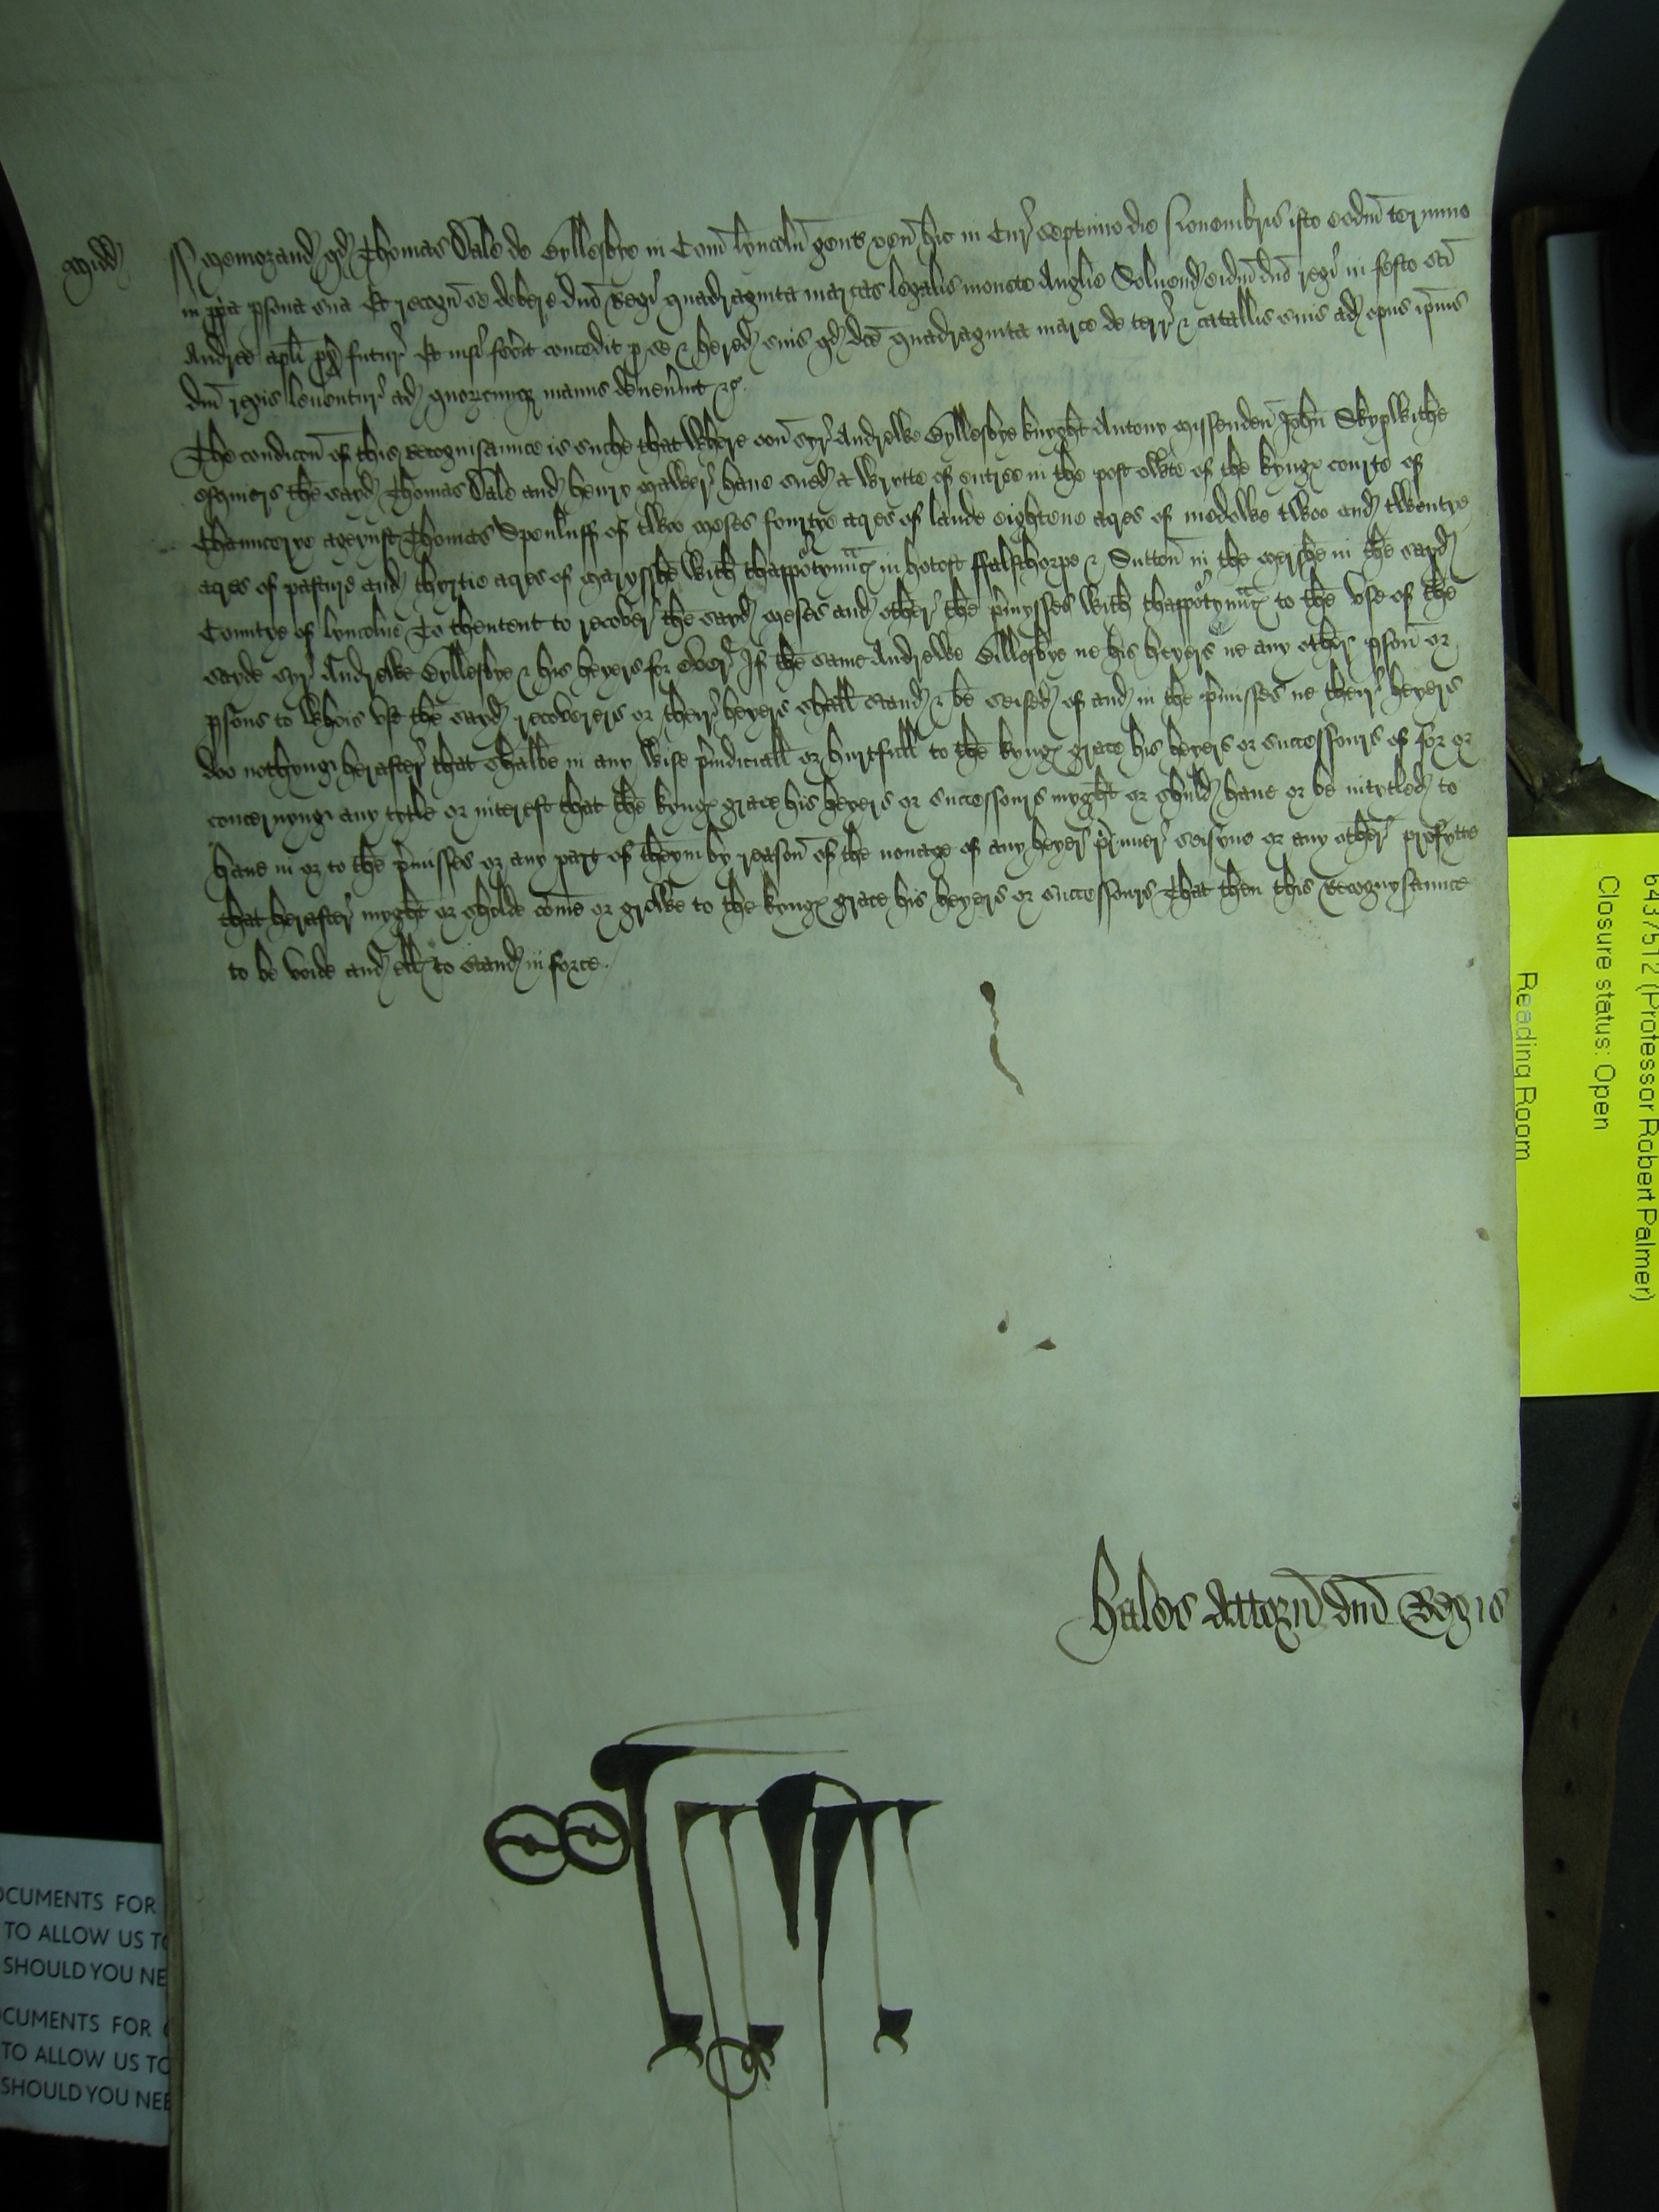 Midd
Memorand qd Thomas Dale de Byllesbye in Com lyncoln gent ven hic in Cur septimo die Novembris isto eodm termino
in ppa psona sua Et recogn se debere dno Regi quadraginta marcas legalis monete Anglie Solvend eidm dno regi in festo sci
Andree apli px futur Et nisi fecit concedit p se & hered suis qd dce quadraginta marce de terr & catallis suis ad opus ipius
dni regis leventur ad quorcumq manus devenint &c.
The condicon of this recognisaunce is suche that where oon syr Andrewe Byllesbye knyght Antony Missenden John Skypwithe
esquiers the sayd Thomas Dale and henry Walker have sued a wrytte of entree in the post owte of the kyngs courte of
Chauncerye ageynst Thomas Spenluff of twoo meses fourtye acres of lande eightene acres of medowe twoo and twentye
acres of pasture and thyrtie acres of marysshe with thapptynncs in hotoft ffalsthorpe & Sutton in the mershe in the sayd
Countye of lyncolne To thentent to recover the sayd meses and other the pmysses with thapptynncs to the use of the
sayde syr Andrewe Byllesbye & his heyers for ever If the same Andrewe Billesbye ne his heyers ne any other pson or
psons to whois use the sayd recoverers or their heyers shall stand & be seised of and in the pmisses ne their heyers
doo nothyng herafter that shalbe in any wise piudiciall or hurtfull to the kyngs grace his heyers or successours of for or
concernyng any tytle or interest that the kyngs grace his heyers or successours myght or shuld have or be intytled to
have in or to the pmisses or any part of theym by reason of the nonage of any heyer prmer seisyne or any other profytte
that herafter myght or sholde come or growe to the kyngs grace his heyers or successours That then this Recognysaunce
to be voide and ell to stand in force.
hales Attorn dni Regis
6437512 (Professor Robert Palmer)
Closure status: Open
Reading Room
OCUMENTS FOR
TO ALLOW US TO
SHOULD YOU NE
OCUMENTS FOR
TO ALLOW US TO
SHOULD YOU NEE